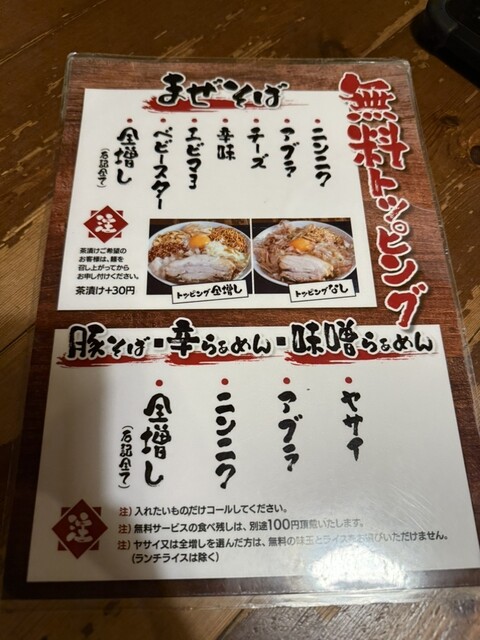 無料トッピング
まぜそば
・ニンニク
・アブラ
・チーズ
・辛味
・エビマヨ
・ベビースター
・全増し
(右記全て)
注
茶漬けご希望の
お客様は、麺を
召し上がってから
お申し付けください。
茶漬け+30円
トッピング全増し
トッピングなし
豚そば・辛らぁめん・味噌らぁめん
・ヤサイ
・アブラ
・ニンニク
・全増し
(右記全て)
注
注）入れたいものだけコールしてください。
注）無料サービスの食べ残しは、別途100円頂戴いたします。
注）ヤサイ又は全増しを選んだ方は、無料の味玉とライスをお選びいただけません。
(ランチライスは除く)